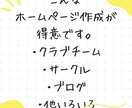 こんな
ホームページ作成が
得意です。
・クラブチーム
・サークル
・ブログ
・他いろいろ